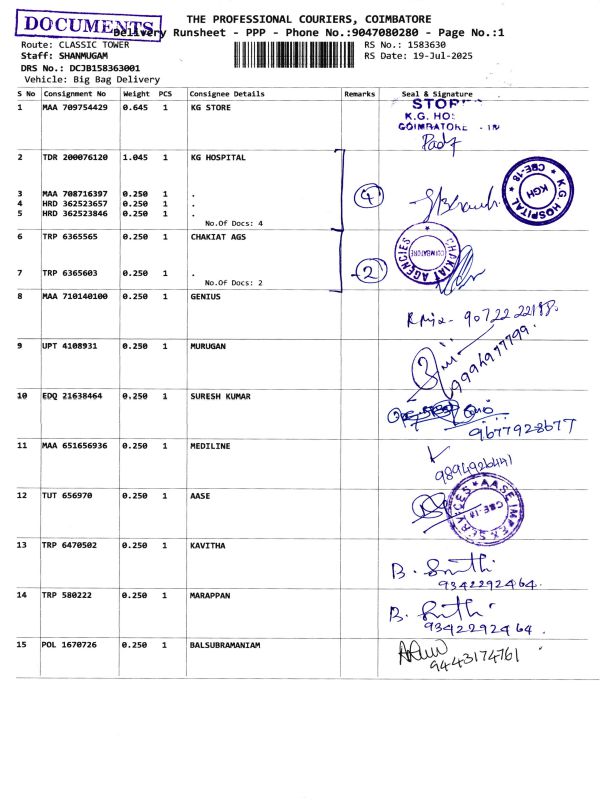 DOCUMENTS
THE PROFESSIONAL COURIERS, COIMBATORE
Delivery Runsheet - PPP - Phone No.:9047080280 - Page No.:1
Route: CLASSIC TOWER RS No.: 1583630
Staff: SHANMUGAM RS Date: 19-Jul-2025
DRS No.: DCJB158363001
Vehicle: Big Bag Delivery
S No Consignment No Weight PCS Consignee Details Remarks Seal & Signature
1 MAA 709754429 0.645 1 KG STORE
K.G. HOS
COIMBATORE
2 TDR 200076120 1.045 1 KG HOSPITAL
K.G. HOSPITAL
KGH
CBE-18
3 MAA 708716397 0.250 1 .
4 HRD 362523657 0.250 1 .
5 HRD 362523846 0.250 1 .
No.Of Docs: 4
4
6 TRP 6365565 0.250 1 CHAKIAT AGS
CHAKIAT AGENCIES
COIMBATORE
7 TRP 6365603 0.250 1 .
No.Of Docs: 2
2
8 MAA 710140100 0.250 1 GENIUS
9 UPT 4108931 0.250 1 MURUGAN
10 EDQ 21638464 0.250 1 SURESH KUMAR
9677928677
11 MAA 651656936 0.250 1 MEDILINE
12 TUT 656970 0.250 1 AASE
AASE IMPEX SERVICES
CBE-18
13 TRP 6470502 0.250 1 KAVITHA
9342292464.
14 TRP 580222 0.250 1 MARAPPAN
9342292464.
15 POL 1670726 0.250 1 BALSUBRAMANIAM
9443174761